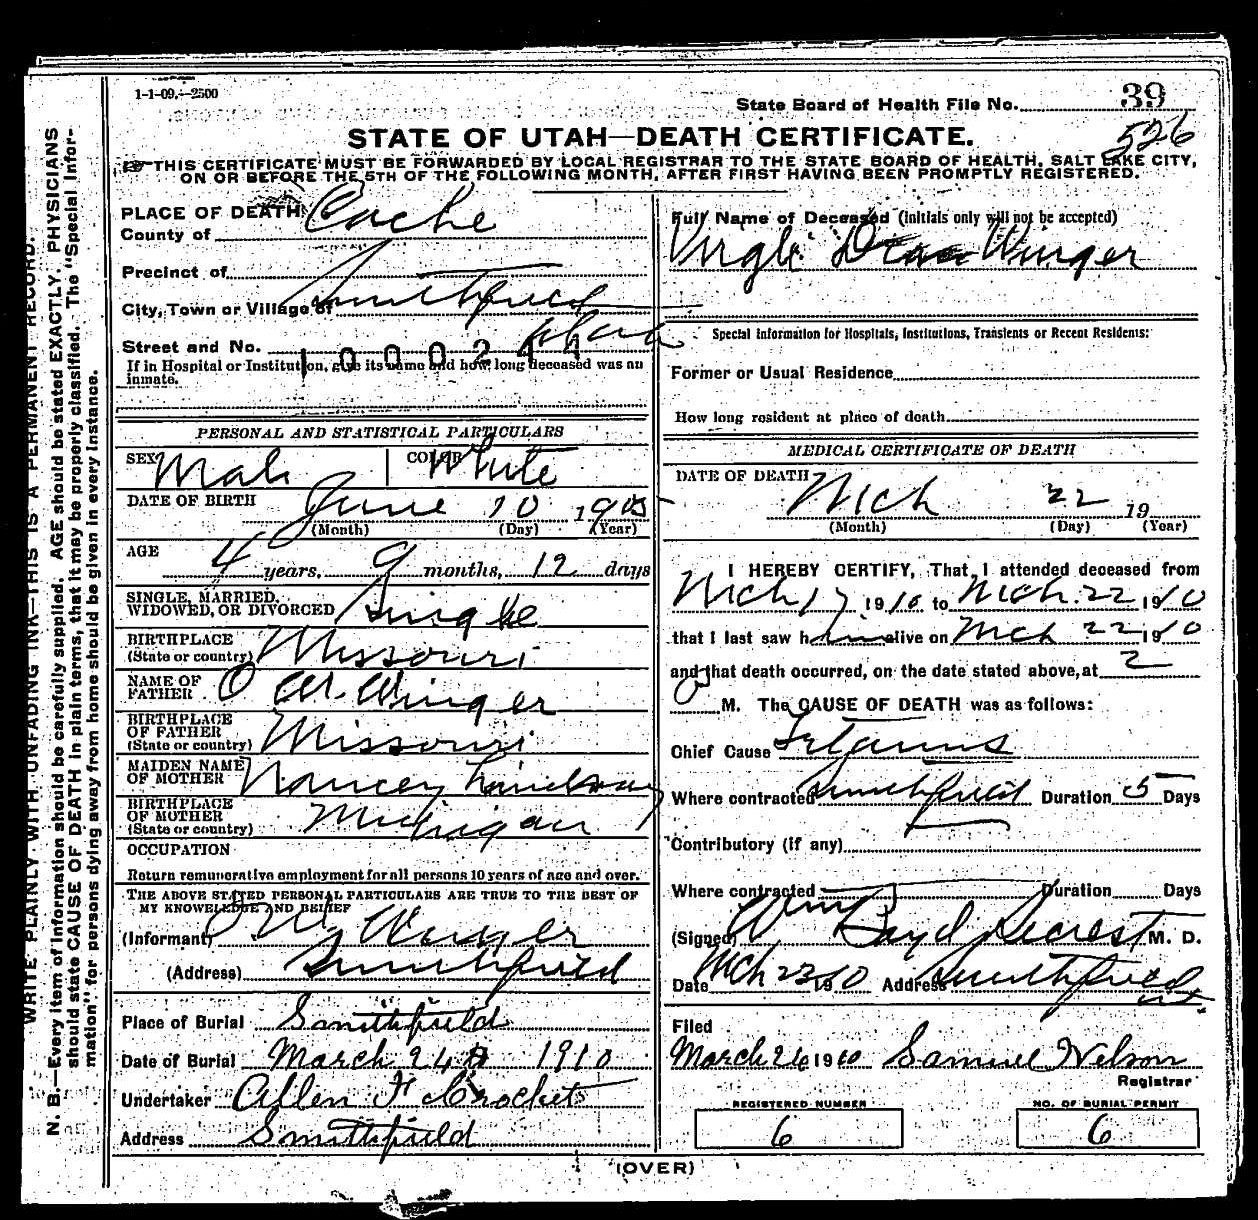 1-1-09.—2500
State Board of Health File No. 39
526
STATE OF UTAH—DEATH CERTIFICATE.
THIS CERTIFICATE MUST BE FORWARDED BY LOCAL REGISTRAR TO THE STATE BOARD OF HEALTH, SALT LAKE CITY,
ON OR BEFORE THE 5TH OF THE FOLLOWING MONTH, AFTER FIRST HAVING BEEN PROMPTLY REGISTERED.
WRITE PLAINLY WITH UNFADING INK—THIS IS A PERMANENT RECORD.
N. B.—Every item of information should be carefully supplied. AGE should be stated EXACTLY. PHYSICIANS
should state CAUSE OF DEATH in plain terms, that it may be properly classified. The "Special Infor-
mation" for persons dying away from home should be given in every instance.
PLACE OF DEATH
County of Cache
Precinct of
City, Town or Village of Smithfield
Street and No. Utah
1000244
If in Hospital or Institution, give its name and how long deceased was an
inmate.
PERSONAL AND STATISTICAL PARTICULARS
SEX Male COLOR White
DATE OF BIRTH June 10 1905
(Month) (Day) (Year)
AGE 4 years, 9 months, 12 days
SINGLE, MARRIED,
WIDOWED, OR DIVORCED Single
BIRTHPLACE
(State or country) Missouri
NAME OF
FATHER O M. Winger
BIRTHPLACE
OF FATHER
(State or country) Missouri
MAIDEN NAME
OF MOTHER Nancey Lindsay
BIRTHPLACE
OF MOTHER
(State or country) Michigan
OCCUPATION
Return remunerative employment for all persons 10 years of age and over.
THE ABOVE STATED PERSONAL PARTICULARS ARE TRUE TO THE BEST OF
MY KNOWLEDGE AND BELIEF
(Informant) O M. Winger
(Address) Smithfield
Place of Burial Smithfield
Date of Burial March 24 1910
Undertaker Allen F Crockett
Address Smithfield
Full Name of Deceased (Initials only will not be accepted)
Virgle Winger
Special Information for Hospitals, Institutions, Transients or Recent Residents:
Former or Usual Residence
How long resident at place of death
MEDICAL CERTIFICATE OF DEATH
DATE OF DEATH Mch 22 19
(Month) (Day) (Year)
I HEREBY CERTIFY, That I attended deceased from
Mch 17 1910 to Mch. 22 1910
that I last saw him alive on Mch 22 1910
and that death occurred, on the date stated above, at 2
M. The CAUSE OF DEATH was as follows:
Chief Cause Tetanus
Where contracted Smithfield Duration 5 Days
Contributory (if any)
Where contracted Duration Days
(Signed) Wm Boyd Secrest M. D.
Date Mch 23 1910 Address Smithfield
Ut
Filed
March 26 1910 Samuel Nelson
Registrar
REGISTERED NUMBER
6
NO. OF BURIAL PERMIT
6
(OVER)